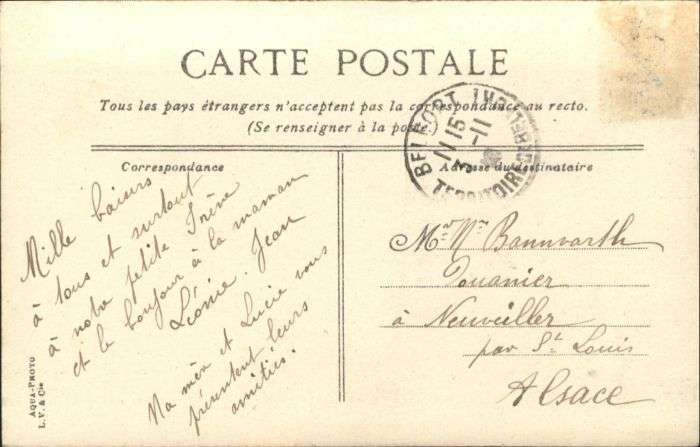 CARTE POSTALE
Tous les pays étrangers n'acceptent pas la correspondance au recto.
(Se renseigner à la poste.)
BELFORT
15
11
TERRITOIRE
Correspondance
Adresse du destinataire
Mille baisers
à tous et surtout
à notre petite Irène
et le bonjour à la maman
Léonie. Jean
Ma mère et Lucie vous
présentent leurs
amitiés.
Mr Bannwarth
Douanier
à Neuweiller
par St Louis
Alsace
AQUA-PHOTO
L. V. & Cie